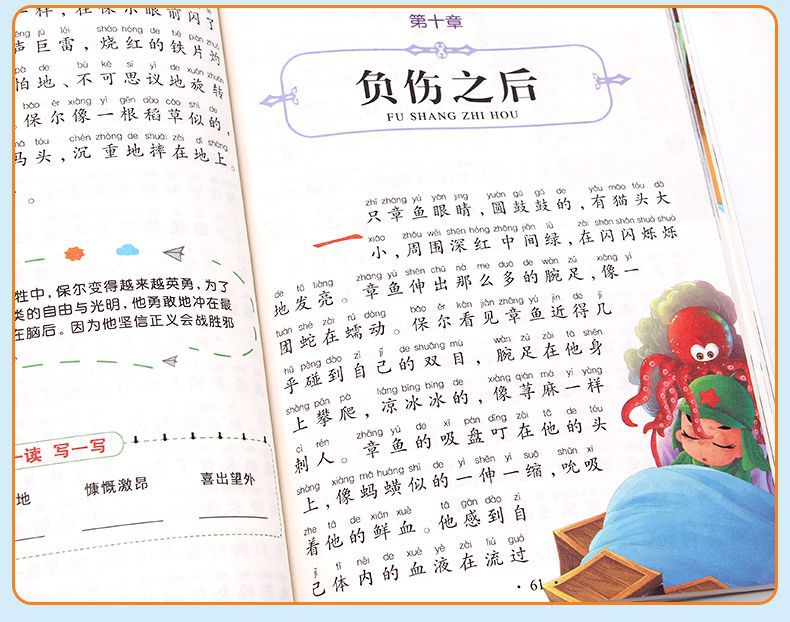 一样，在保尔眼前闪了
shēng jù léi shāo hóng de tiě piàn zhuó
声巨雷，烧红的铁片灼
pà de bù kě sī yì de xuán zhuǎn
怕地、不可思议地旋转
bǎo ěr xiàng yì gēn dào cǎo shì de
。保尔像一根稻草似的，
mǎ tóu chén zhòng de shuāi zài dì shàng
马头，沉重地摔在地上。
。
牲中，保尔变得越来越英勇，为了
类的自由与光明，他勇敢地冲在最
在脑后。因为他坚信正义会战胜邪
一读 写一写
地 慷慨激昂 喜出望外
第十章
负伤之后
FU SHANG ZHI HOU
zhī zhāng yú yǎn jing yuán gǔ gǔ de yǒu māo tóu dà
一只章鱼眼睛，圆鼓鼓的，有猫头大
xiǎo zhōu wéi shēn hóng zhōng jiān lǜ zài shǎn shǎn shuò shuò
小，周围深红中间绿，在闪闪烁烁
de fā liàng zhāng yú shēn chū nà me duō de wàn zú xiàng yì
地发亮。章鱼伸出那么多的腕足，像一
tuán shé zài rú dòng bǎo ěr kàn jiàn zhāng yú jìn de jǐ
团蛇在蠕动。保尔看见章鱼近得几
hū pèng dào zì jǐ de shuāng mù wàn zú zài tā shēn
乎碰到自己的双目，腕足在他身
shàng pān pá liáng bīng bīng de xiàng qián má yí yàng
上攀爬，凉冰冰的，像荨麻一样
cì rén zhāng yú de xī pán dīng zài tā de tóu
刺人。章鱼的吸盘叮在他的头
shàng xiàng mǎ huáng shì de yì shēn yì suō shǔn xī
上，像蚂蟥似的一伸一缩，吮吸
zhe tā de xiān xuè tā gǎn dào zì
着他的鲜血。他感到自
jǐ tǐ nèi de xuè yè zài liú guò
己体内的血液在流过
61